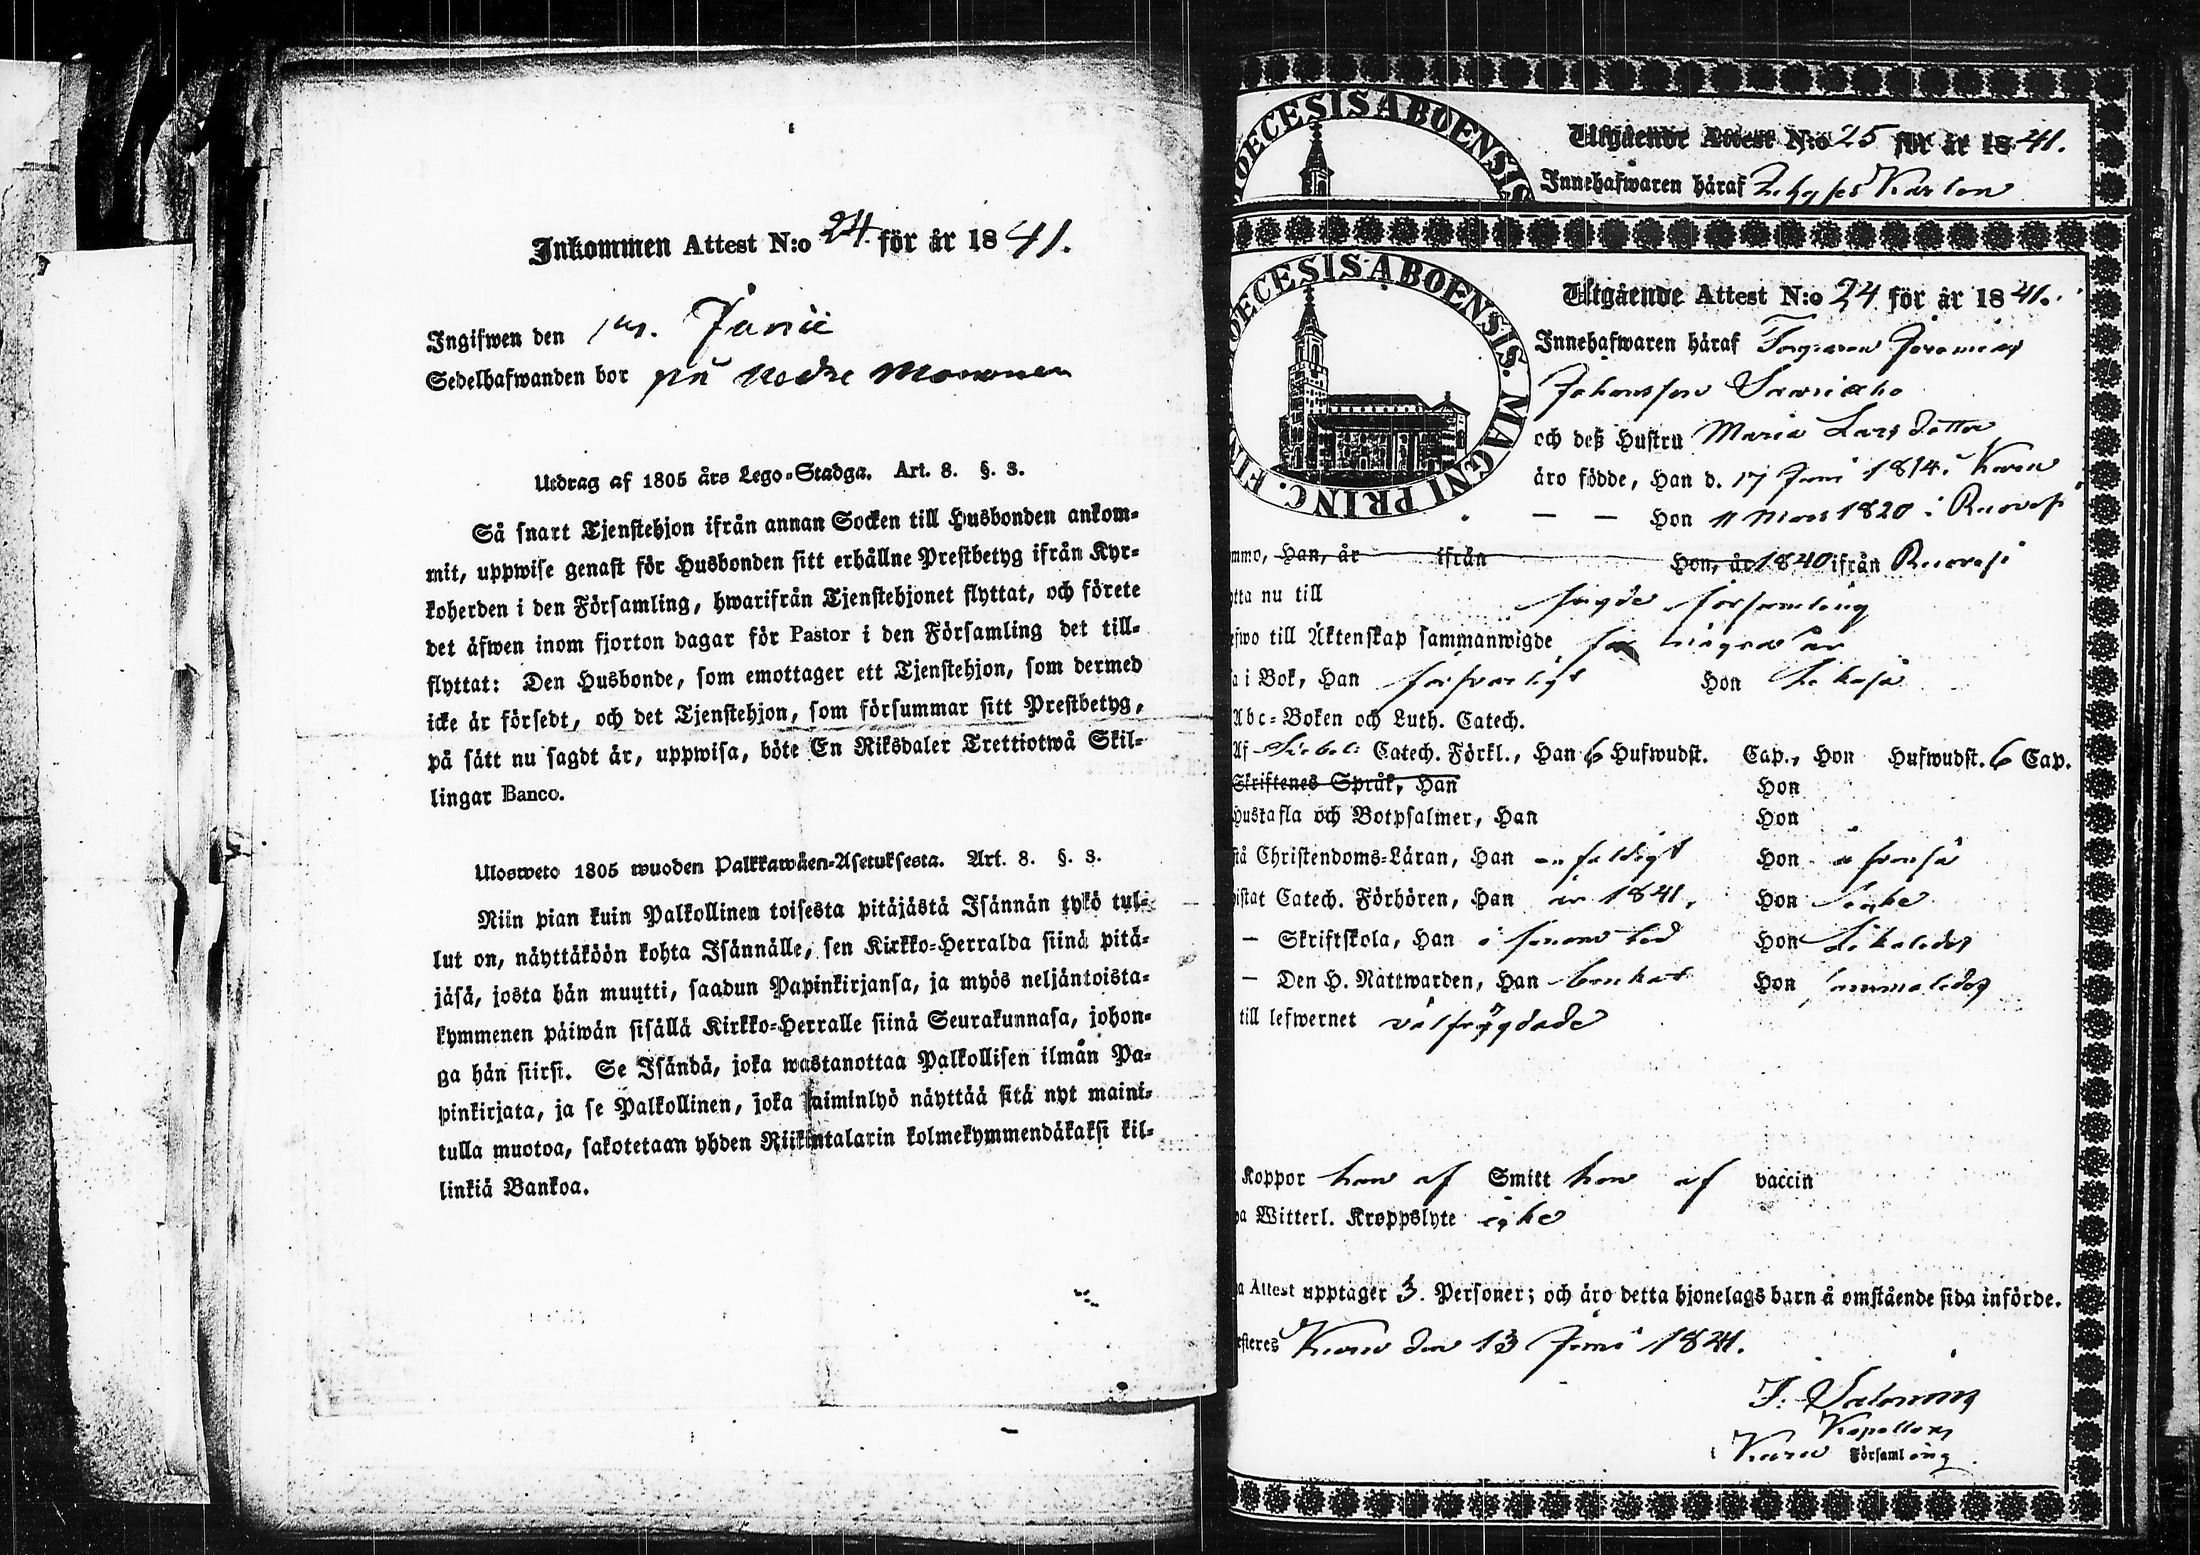 Inkommen Attest N:o 24 för år 1841.
Ingifwen den Junii
Sedelhafwanden bor på Nedre
Utdrag af 1805 års Lego-Stadga. Art. 8. §. 3.
Så snart Tjenstehjon ifrån annan Socken till Husbonden ankom-
mit, uppwise genast för Husbonden sitt erhållne Prestbetyg ifrån Kyr-
koherden i den Församling, hwarifrån Tjenstehjonet flyttat, och förete
det äfwen inom fjorton dagar för Pastor i den Församling det till-
flyttat: Den Husbonde, som emottager ett Tjenstehjon, som dermed
icke är försedt, och det Tjenstehjon, som försummar sitt Prestbetyg,
på sätt nu sagdt är, uppwisa, böte En Riksdaler Trettiotwå Skil-
lingar Banco.
Ulosweto 1805 wuoden Palkkawäen-Asetuksesta. Art. 8. §. 3.
Niin pian kuin Palkollinen toisesta pitäjästä Isännän tykö tul-
lut on, näyttäköön kohta Isännälle, sen Kirkko-Herralda siinä pitä-
jäsä, josta hän muutti, saadun Papinkirjansa, ja myös neljäntoista-
kymmenen päiwän sisällä Kirkko-Herralle siinä Seurakunnasa, johon-
ga hän siirsi. Se Isändä, joka wastanottaa Palkollisen ilman Pa-
pinkirjata, ja se Palkollinen, joka laiminlyö näyttää sitä nyt maini-
tulla muotoa, sakotetaan yhden Riikintalarin kolmekymmendäkaksi kil-
linkiä Bankoa.
DIOECESIS ABOENSIS
Utgående Attest N:o 25 för år 1841.
Innehafwaren häraf
DIOECESIS ABOENSIS. MAGNI PRINC. FIN
Utgående Attest N:o 24 för år 1841.
Innehafwaren häraf Torparen Jeremias
Johansson
och deß Hustru Maria Larsdotter
äro födde, Han d. 17 Juni 1814 i Karu
— — Hon 11 Mars 1820 i Ruovesi
mmo, Han, år ifrån Hon, år 1840 ifrån Ruovesi
tta nu till sagde församling
efwo till Äktenskap sammanwigde för några år
a i Bok, Han försvarligt Hon likaså
Abc-Boken och Luth. Catech.
Af Catech. Förkl., Han 6 Hufwudst. Cap., Hon Hufwudst. 6 Cap.
Skriftenes Språk, Han Hon
Hustafla och Botpsalmer, Han Hon
stå Christendoms-Läran, Han enfaldigt Hon äfvenså
istat Catech. Förhören, Han år 1841, Hon icke
— Skriftskola, Han Hon likaledes
— Den H. Nattwarden, Han Hon sammaledes
till lefwernet välfrägdade
Koppor han af Smitt hon af vaccin
a Witterl. Kroppslyte icke
a Attest upptager 3. Personer; och äro detta hjonelags barn å omstående sida införde.
steres Karu den 13 Juni 1841.
Kapellan
i Karu Församling